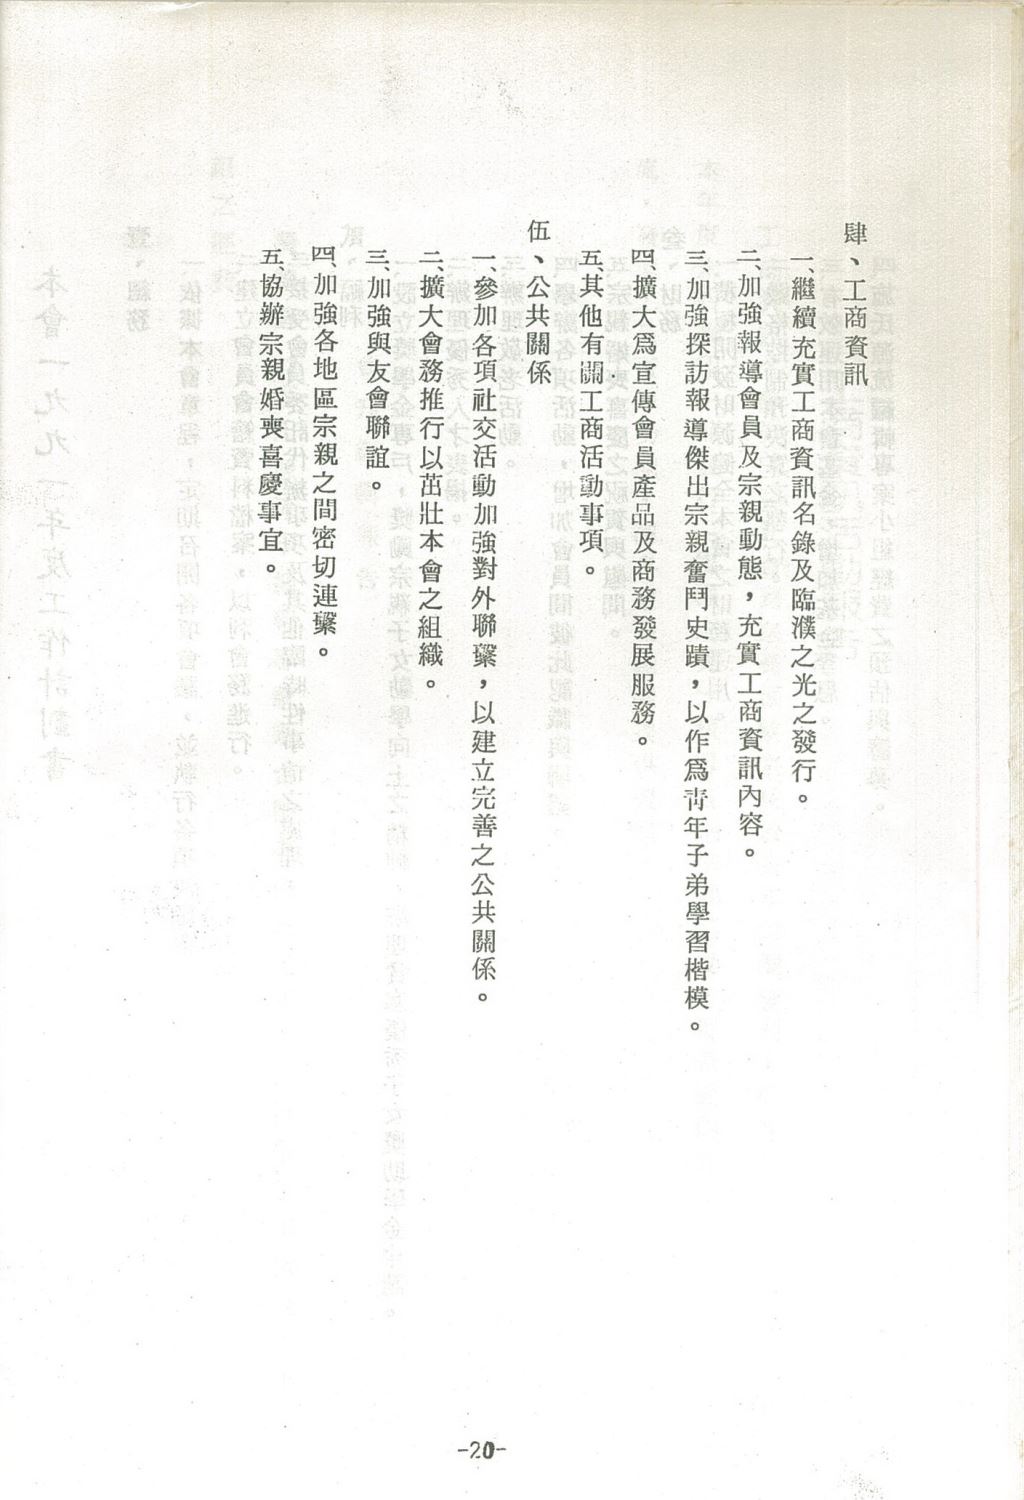 肆、工商資訊
一、繼續充實工商資訊名錄及臨濮之光之發行。
二、加強報導會員及宗親動態，充實工商資訊內容。
三、加強探訪報導傑出宗親奮鬥史蹟，以作爲靑年子弟學習楷模。
四、擴大爲宣傳會員產品及商務發展服務。
五、其他有關工商活動事項。
伍、公共關係
一、參加各項社交活動加強對外聯繫，以建立完善之公共關係。
二、擴大會務推行以茁壯本會之組織。
三、加強與友會聯誼。
四、加強各地區宗親之間密切連繫。
五、協辦宗親婚喪喜慶事宜。
-20-